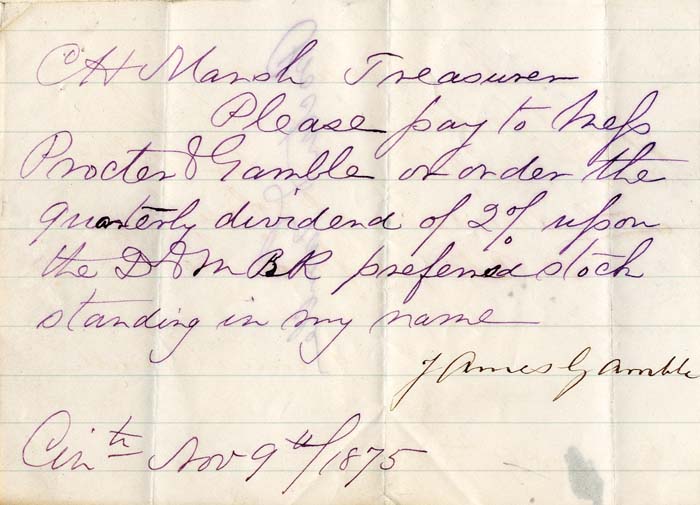 C H Marsh Treasurer
Please pay to Mess
Procter & Gamble or order the
quarterly dividend of 2% upon
the D & M BR preferred stock
standing in my name
James Gamble
Cinti Nov 9th/1875